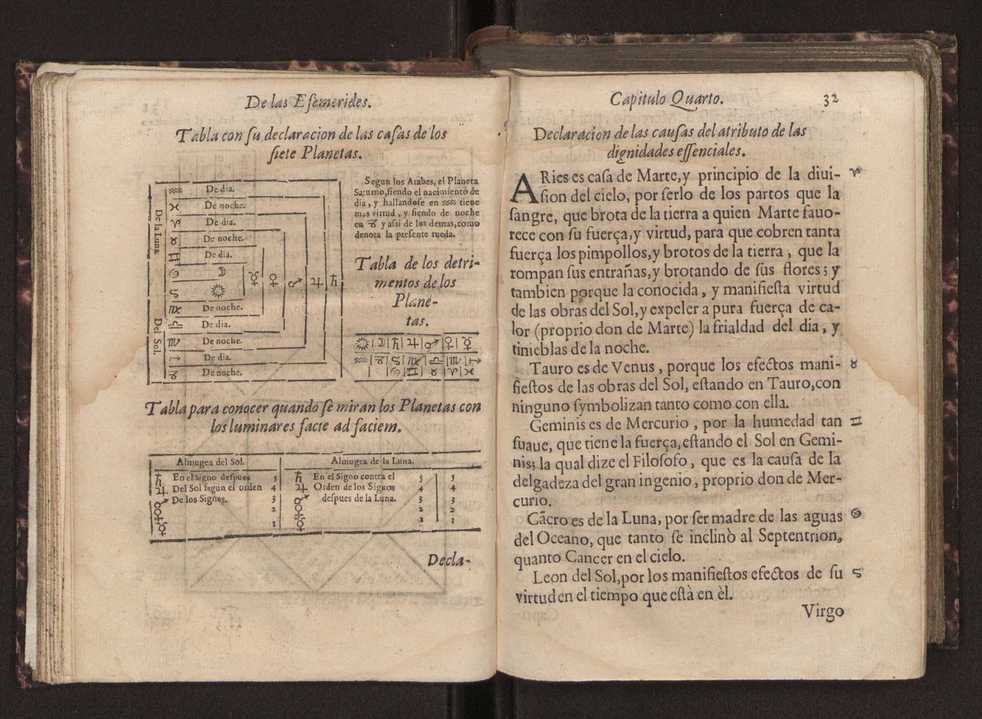 De las Efemerides.
Tabla con ſu declaracion de las caſas de los
ſiete Planetas.
De la Luna
Del Sol.
♒ De dia.
♓ De noche.
♈ De dia.
♉ De noche.
♊ De dia.
♋ ☽
♌ ☼ ☿ ♀ ♂ ♃ ♄
♍ De noche.
♎ De dia.
♏ De noche.
♐ De dia.
♑ De noche.
Segun los Arabes, el Planeta
Saturno, ſiendo el nacimiento de
dia, y hallandoſe en ♒ tiene
mas virtud, y ſiendo de noche
en ♑ y aſsi de los demas, como
denota la preſente rueda.
Tabla de los detri-
mentos de los
Plane-
tas.
☼ ☽ ♄ ♃ ♂ ♀ ☿
♒ ♑ ♋ ♍ ♎ ♏ ♐
♌ ♊ ♉ ♈ ♓
Tabla para conocer quando ſe miran los Planetas con
los luminares facie ad faciem.
Almugea del Sol.
♄ En el ſigno deſpues 5
♃ Del Sol ſegun el orden 4
♂ De los Signos. 3
♀ 2
☿ 1
Almugea de la Luna.
♄ En el Signo contra el 5 5
♃ Orden de los Signos 4 4
♂ deſpues de la Luna. 3 3
♀ 2 2
☿ 2 1
Decla-
Capitulo Quarto. 32
Declaracion de las cauſas del atributo de las
dignidades eſſenciales.
ARies es caſa de Marte, y principio de la diui- ♈
ſion del cielo, por ſerlo de los partos que la
ſangre, que brota de la tierra a quien Marte fauo-
rece con ſu fuerça, y virtud, para que cobren tanta
fuerça los pimpollos, y brotos de la tierra, que la
rompan ſus entrañas, y brotando de ſus flores; y
tambien porque la conocida, y manifieſta virtud
de las obras del Sol, y expeler a pura fuerça de ca-
lor (proprio don de Marte) la frialdad del dia, y
tinieblas de la noche.
Tauro es de Venus, porque los efectos mani- ♉
fieſtos de las obras del Sol, eſtando en Tauro, con
ninguno ſymbolizan tanto como con ella.
Geminis es de Mercurio, por la humedad tan ♊
ſuaue, que tiene la fuerça, eſtando el Sol en Gemi-
nis; la qual dize el Filoſofo, que es la cauſa de la
delgadeza del gran ingenio, proprio don de Mer-
curio.
Cãcro es de la Luna, por ſer madre de las aguas ♋
del Oceano, que tanto ſe inclinò al Septentrion,
quanto Cancer en el cielo.
Leon del Sol, por los manifieſtos efectos de ſu ♌
virtud en el tiempo que eſtà en èl.
Virgo